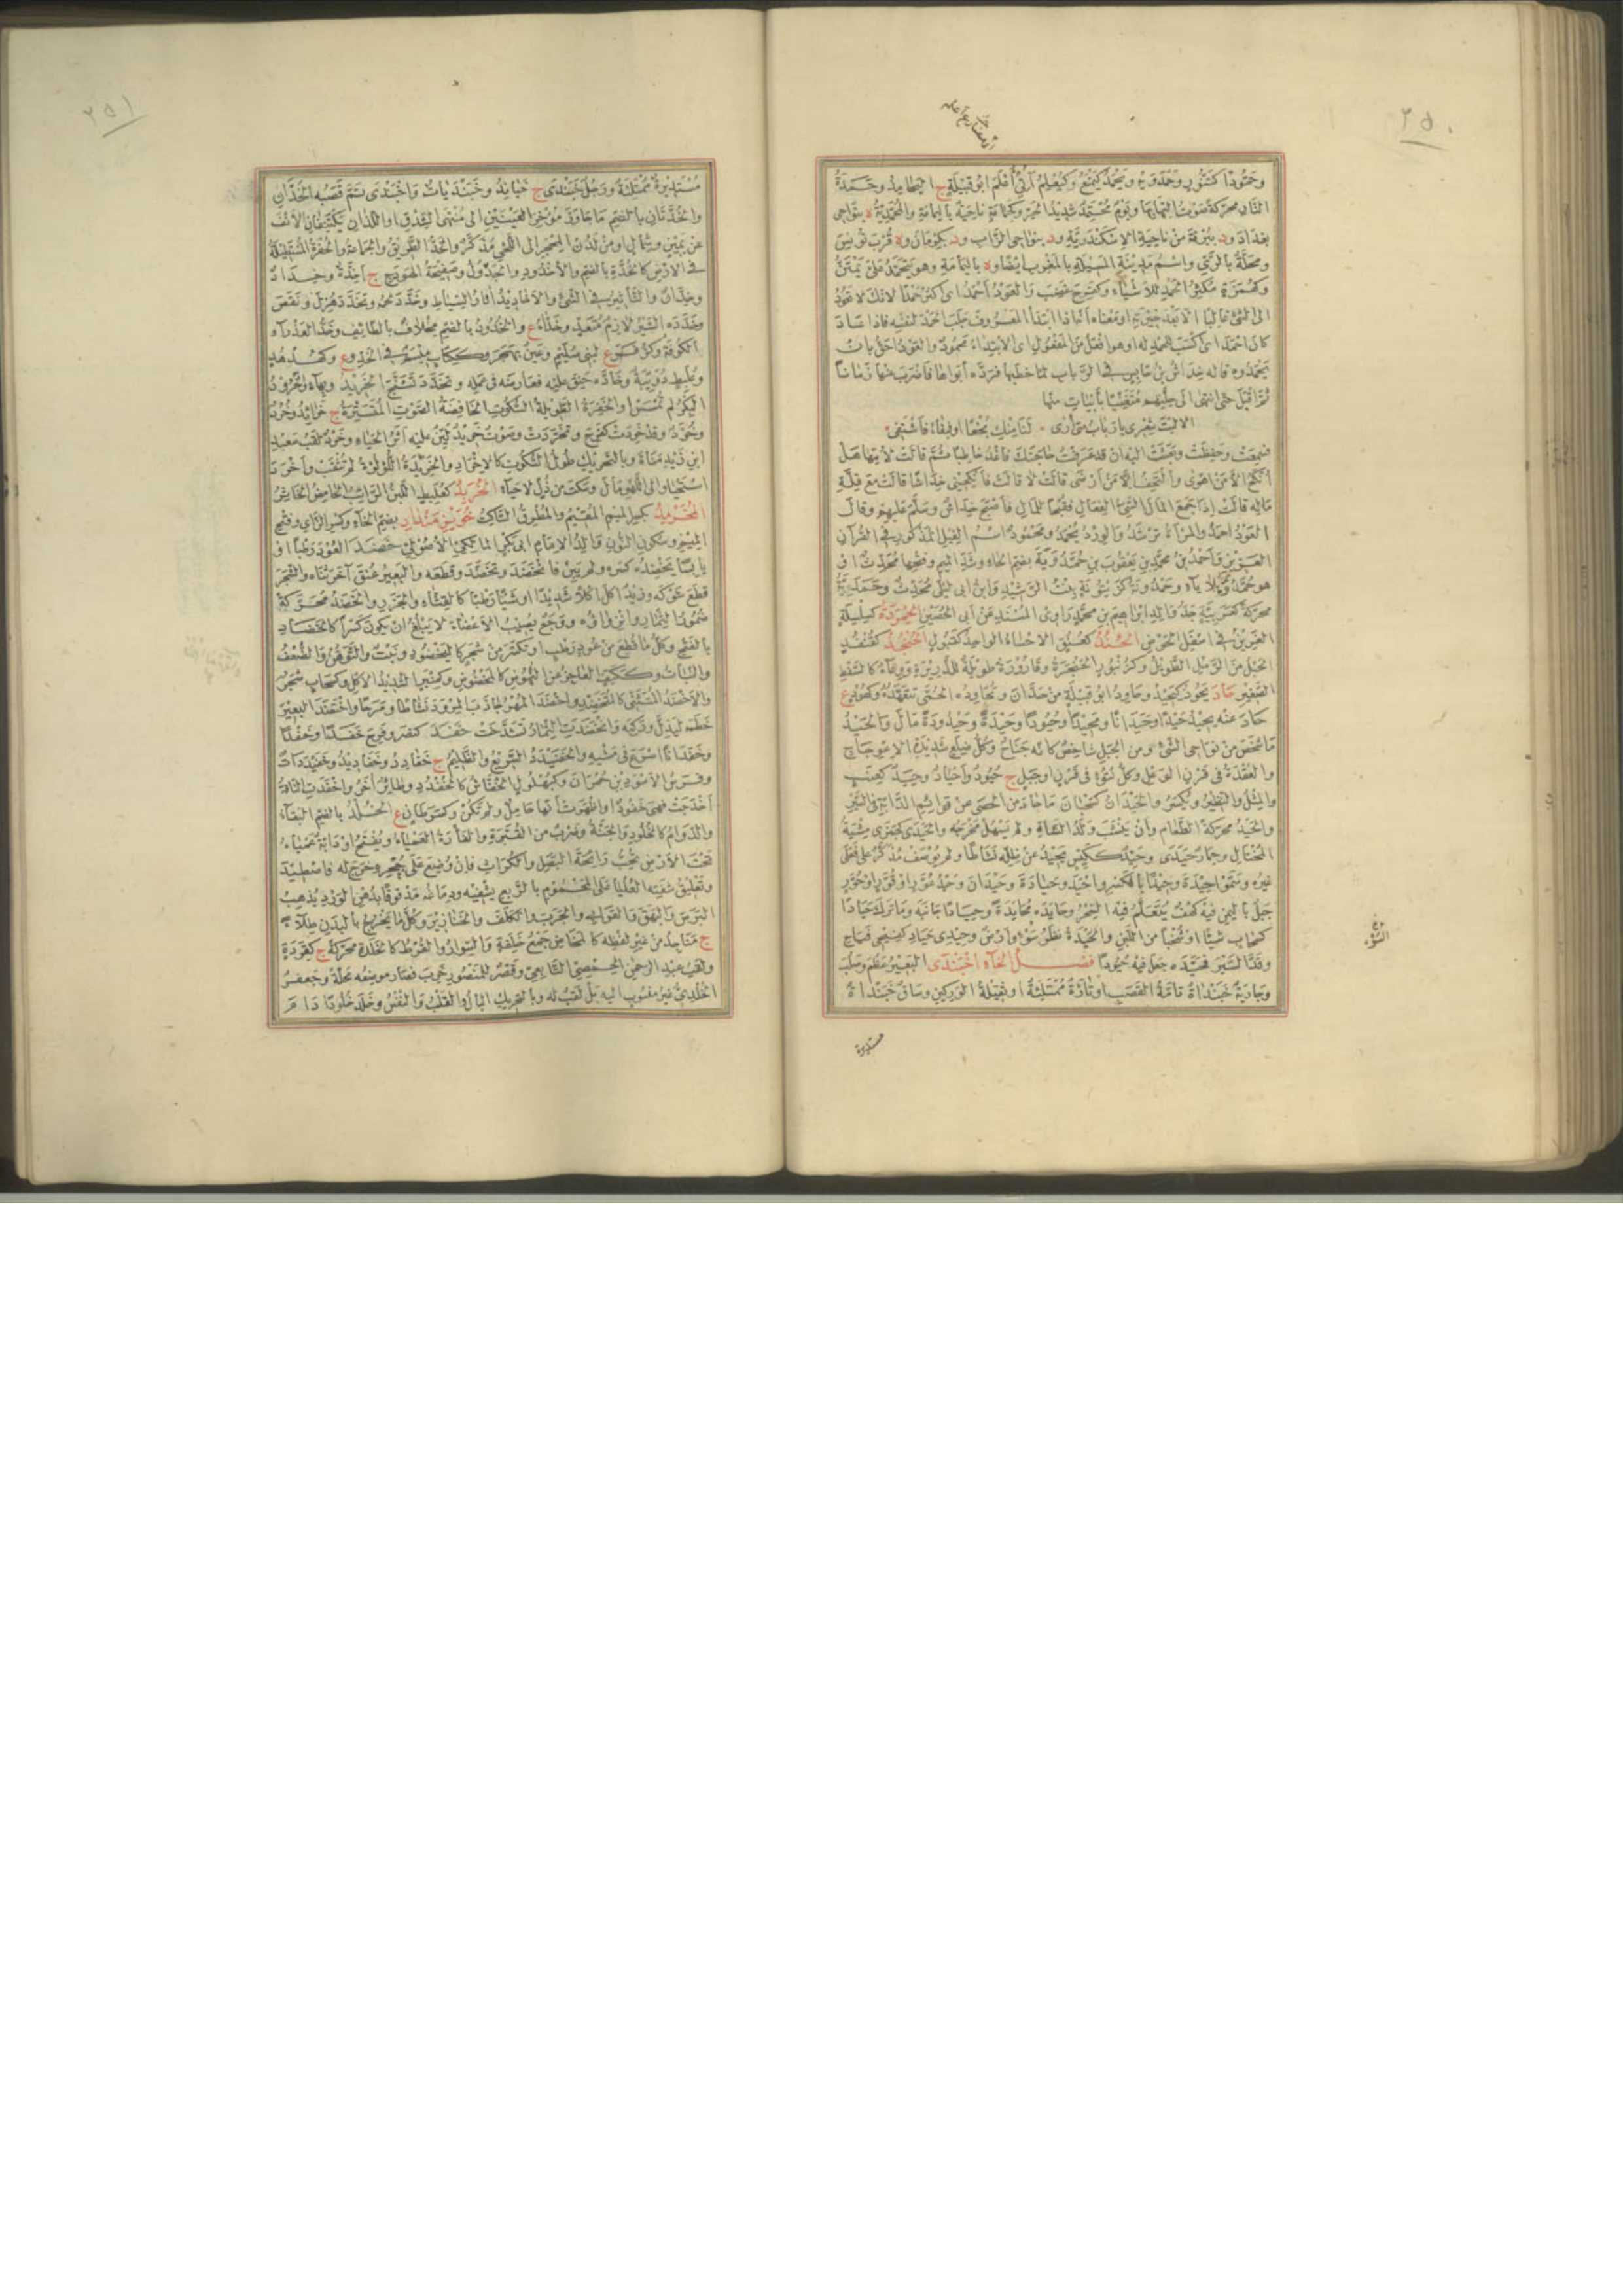 ٢٥٠
وخمودا كتنور وحمدون ويحمد كيمنع وكيعلم آتي أعلم ابو قبيلة ج اليحامد وحمدة
النار محركة صوت التهابها ويوم محتمد شديد الحر وكحمامة ناحية باليمامة والمحمدية ه بنواحي
بغداد ود ببرقة من ناحية الاسكندرية ود بنواحي الزاب ود بكرمان وه قرب تونس
ومحلة بالري واسم مدينة المسيلة بالمغرب ايضا وه باليمامة وهو يتحمد علي يمتن
وكهمزة مكثر الحمد للاشياء وكفرح غضب والعود احمد اى اكثر حمدا لانك لا تعود
الى الشئ غالبا الا بعد خبرته او معناه انه اذا ابتدأ المعروف جلب الحمد لنفسه فاذا عاد
كان احمد اى اكسب للحمد له او هو افعل من المفعول اى الابتداء محمود والعود احق بان
يحمدوه قاله خداش بن حابس في الرباب لما خطبها فرده أبواها فاضرب عنها زمانا
ثم اقبل حتى انتهى الى حلتهم متغنيا بأبيات منها
الا ليت شعرى يا رباب متى أرى ۰ لنا منك نجحا او شفاء فاشتفى ۰
فسمعت وحفظت وبعثت اليه ان قد عرفت حاجتك فاغد خاطبا ثم قالت لأمها هل
أنكح الا من اهوى والتحف الا من أرضى قالت لا قالت فأنكحيني خداشا قالت مع قلة
ماله قالت اذا جمع المال السيئ الفعال فقبحا للمال فأصبح خداش وسلم عليهم وقال
العود احمد والمرأة ترشد والورد يحمد ومحمود اسم الفيل المذكور في القرآن
العزيز واحمد بن محمد بن يعقوب بن حمدويه بضم الحاء وشد الميم وفتحها محدث او
هو حمده بلا ياء وحمدونة كزيتونة بنت الرشيد وابن ابى ليلى محدث وحمدية
محركة كعربية جد والد ابراهيم بن محمد راوى المسند عن ابى الحصين الحمردة كسلسلة
الغرين في اسفل الحوض الحند كعنق الاحساء الواحد كقبول الحنجد كقنفذ
الحبل من الرمل الطويل وكزنبور الحنجرة وقارورة طويلة للذريرة ووعاء كالسفط
الصغير حاد يحود كيحيد وحاود ابو قبيلة من حدان وتحاوده الحمى تتعهده وكهود ع
حاد عنه يحيد حيدا وحيدانا ومحيدا وحيودا وحيدة وحيدودة مال والحيد
ما شخص من نواحي الشئ ومن الجبل شاخص كانه جناح وكل ضلع شديدة الاعوجاج
والعقدة في قرن الوعل وكل نتوء في قرن او جبل ج حيود وأحياد وحيد كعنب
والمثل والنظير ويكسر والحيدان كسحبان ما حاد من الحصى عن قوائم الدابة في السير
والحيد محركة الطعام وأن ينشب ولد الشاة ولم يسهل مخرجه والحيدى كجمزى مشية
المختال وحمار حيدى وحيد ككيس يحيد عن ظله نشاطا ولم يوصف مذكر على فعلى
غيره وسموا حيدة وحيدا بالكسر واحيد وحيادة وحيدان وحيد عور او قور او حور
جبل باليمن فيه كهف يتعلم فيه السحر وحايده محايدة وحيادا جانبه وما ترك حيادا
كسحاب شيئا او شخبا من اللبن والحيدة نظر سوء وارض وحيدى حياد كفيحي فياح
وقد السير فحيده جعل فيه حيودا فصل الخاء اخبندى البعير عظم وصلب
وجارية خبنداة تامة القصب او تارة ممتلئة او ثقيلة الوركين وساق خبنداة
مستديرة
٢٥١
مستديرة ممتلئة ورجل خبندى ج خباند وخبنديات واخبندى تم قصبه الخدان
والخدتان بالضم ما جاوز مؤخر العينين الى منتهى الشدق او اللذان يكتنفان الانف
عن يمين وشمال او من لدن المحجر الى اللحي مذكر والخد الطريق والجماعة والحفرة المستطيلة
في الارض كالخدة بالضم والأخدود والجدول وصفيحة الهودج ج أخدة وخداد
وخدان والتأثير في الشئ والاخاديد آثار السياط وخدد لحمه وتخدد هزل ونقص
وخدده السير لازم متعد وخداء ع والخدود بالضم مخلاف بالطائف وخد العذراء
الكوفة وكزفر ع لبني سليم وعين بهجر وككتاب ميسم في الخد وع وكهدهد
وعلبط دويبة وخاده حنق عليه فعارضه في عمله وتخدد تشنج الخريد وبهاء والخرود
البكر لم تمسس او الخفرة الطويلة السكوت الخافضة الصوت المتسترة ج خرائد وخرد
وخرد وقد خردت كفرح وتخردت وصوت خريد لين عليه أثر الحياء وخرد لقب سعد
ابن زيد مناة وبالتحريك طول السكوت كالاخراد والخريدة اللؤلؤة لم تثقب وأخرد
استحيا والى اللهو مال وسكت من ذل لا حياء الخربد كعلبط اللبن الرائب الحامض الخاثر
المخرمد بكسر الميم المقيم والمطرق الساكت خويز منداد بضم الخاء وكسر الزاي وفتح
الميم وسكون النون والد الامام ابى بكر المالكي الاصولي خضد العود رطبا او
يابسا يخضده كسره ولم يبن فانخضد وتخضد وقطعه والبعير عنق آخر ثناه والشجر
قطع شوكه وزيد اكل اكلا شديدا او شيئا رطبا كالقثاء والجزر والخضد محركة
ضمور الثمار وانزواؤه ووجع يصيب الاعضاء لا يبلغ ان يكون كسرا كالخضاد
بالفتح وكل ما قطع من عود رطب او تكسر من شجر كالمخضود ونبت والتوهن والضعف
والنبات وككتف العاجز من النهوض كالمخضود وكمنبر الشديد الاكل وكسحاب شجر
والاخضد المتثنى كالمتخضد واختضد المهر لجاذب المرود نشاطا ومرحا واختضد البعير
خطمه ليذل وركبه وانخضدت الثمار تشدخت خفد كنصر وفرح خفدا وخفدا
وخفدانا اسرع في مشيه والخفيدد السريع والظليم ج خفادد وخفاديد وخفيددات
وفرس الاسود بن حمران وكبهلول الخفاش كالخفدد وطائر آخر واخفدت الناقة
أخدجت فهى خفود او اظهرت انها حامل ولم تكن وكسرطان ع الخلد بالضم البقاء
والدوام كالخلود والجنة وضرب من القبرة والفأرة العمياء ويفتح او دابة عمياء
تحت الارض تحب رائحة البصل والكراث فان وضع على جحره خرج له فاصطيد
وتعليق شفته العليا على المحموم بالربع يشفيه ودماغه مدوفا بدهن الورد يذهب
البرص والبهق والقوابي والجرب والكلف والخنازير وكل ما يخرج بالبدن طلاء
ج مناجذ من غير لفظه كالمخاض جمع خلفة والسوار والقرط كالخلدة محركة ج كقردة
ولقب عبد الرحمن الحمصي التابعي وقصر للمنصور خرب فصار موضعه محلة وجعفر
الخلدي غير منسوب اليه بل لقب له وبالتحريك البال والقلب والنفس وخلد خلودا دام